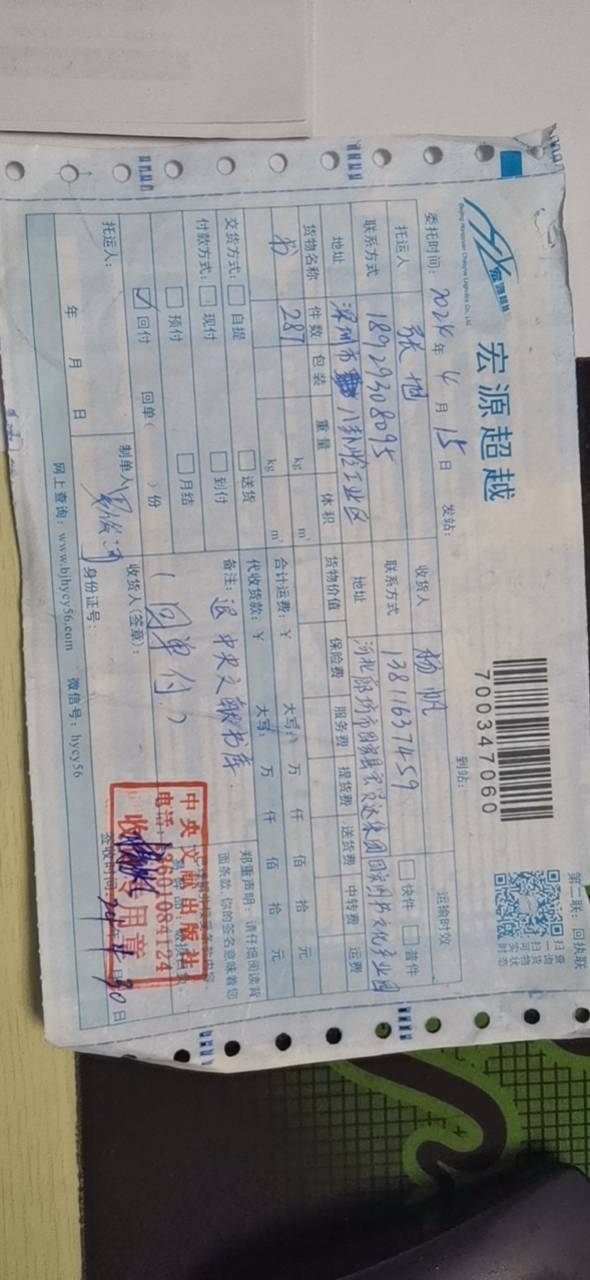 宏源超越
Beijing Hongyuan Chaoyue Logistics Co., Ltd.
700347060
第二联：回执联
扫一扫
查询货物
可实时状态
委托时间：2024年4月15日
发站：
到站：
运输时效
托运人 张旭
收货人 杨帆
快件 普件
联系方式 18929308095
联系方式 13811637459
地址 深圳市八卦岭工业区
地址 河北廊坊市固安县
货物名称 件数 包装 重量 体积 货物价值 保险费 服务费 提货费 送货费 中转费 运费
书 287 kg m³
kg m³
合计运费：￥ 大写： 万 仟 佰 拾 元
交货方式： 自提 送货
代收货款：￥ 大写： 万 仟 佰 拾 元
付款方式： 现付 到付
备注：退中央文献书库
郑重声明：请仔细阅读背面条款，你的签名意味着您
预付 月结
回付 回单（ ）份
（回单付）
中央文献出版社
收书专用章
托运人：
年 月 日
制单人：
收货人（签章）：
身份证号：
签收时间：
30日
网上查询：www.bjhycy56.com 微信号：hycy56